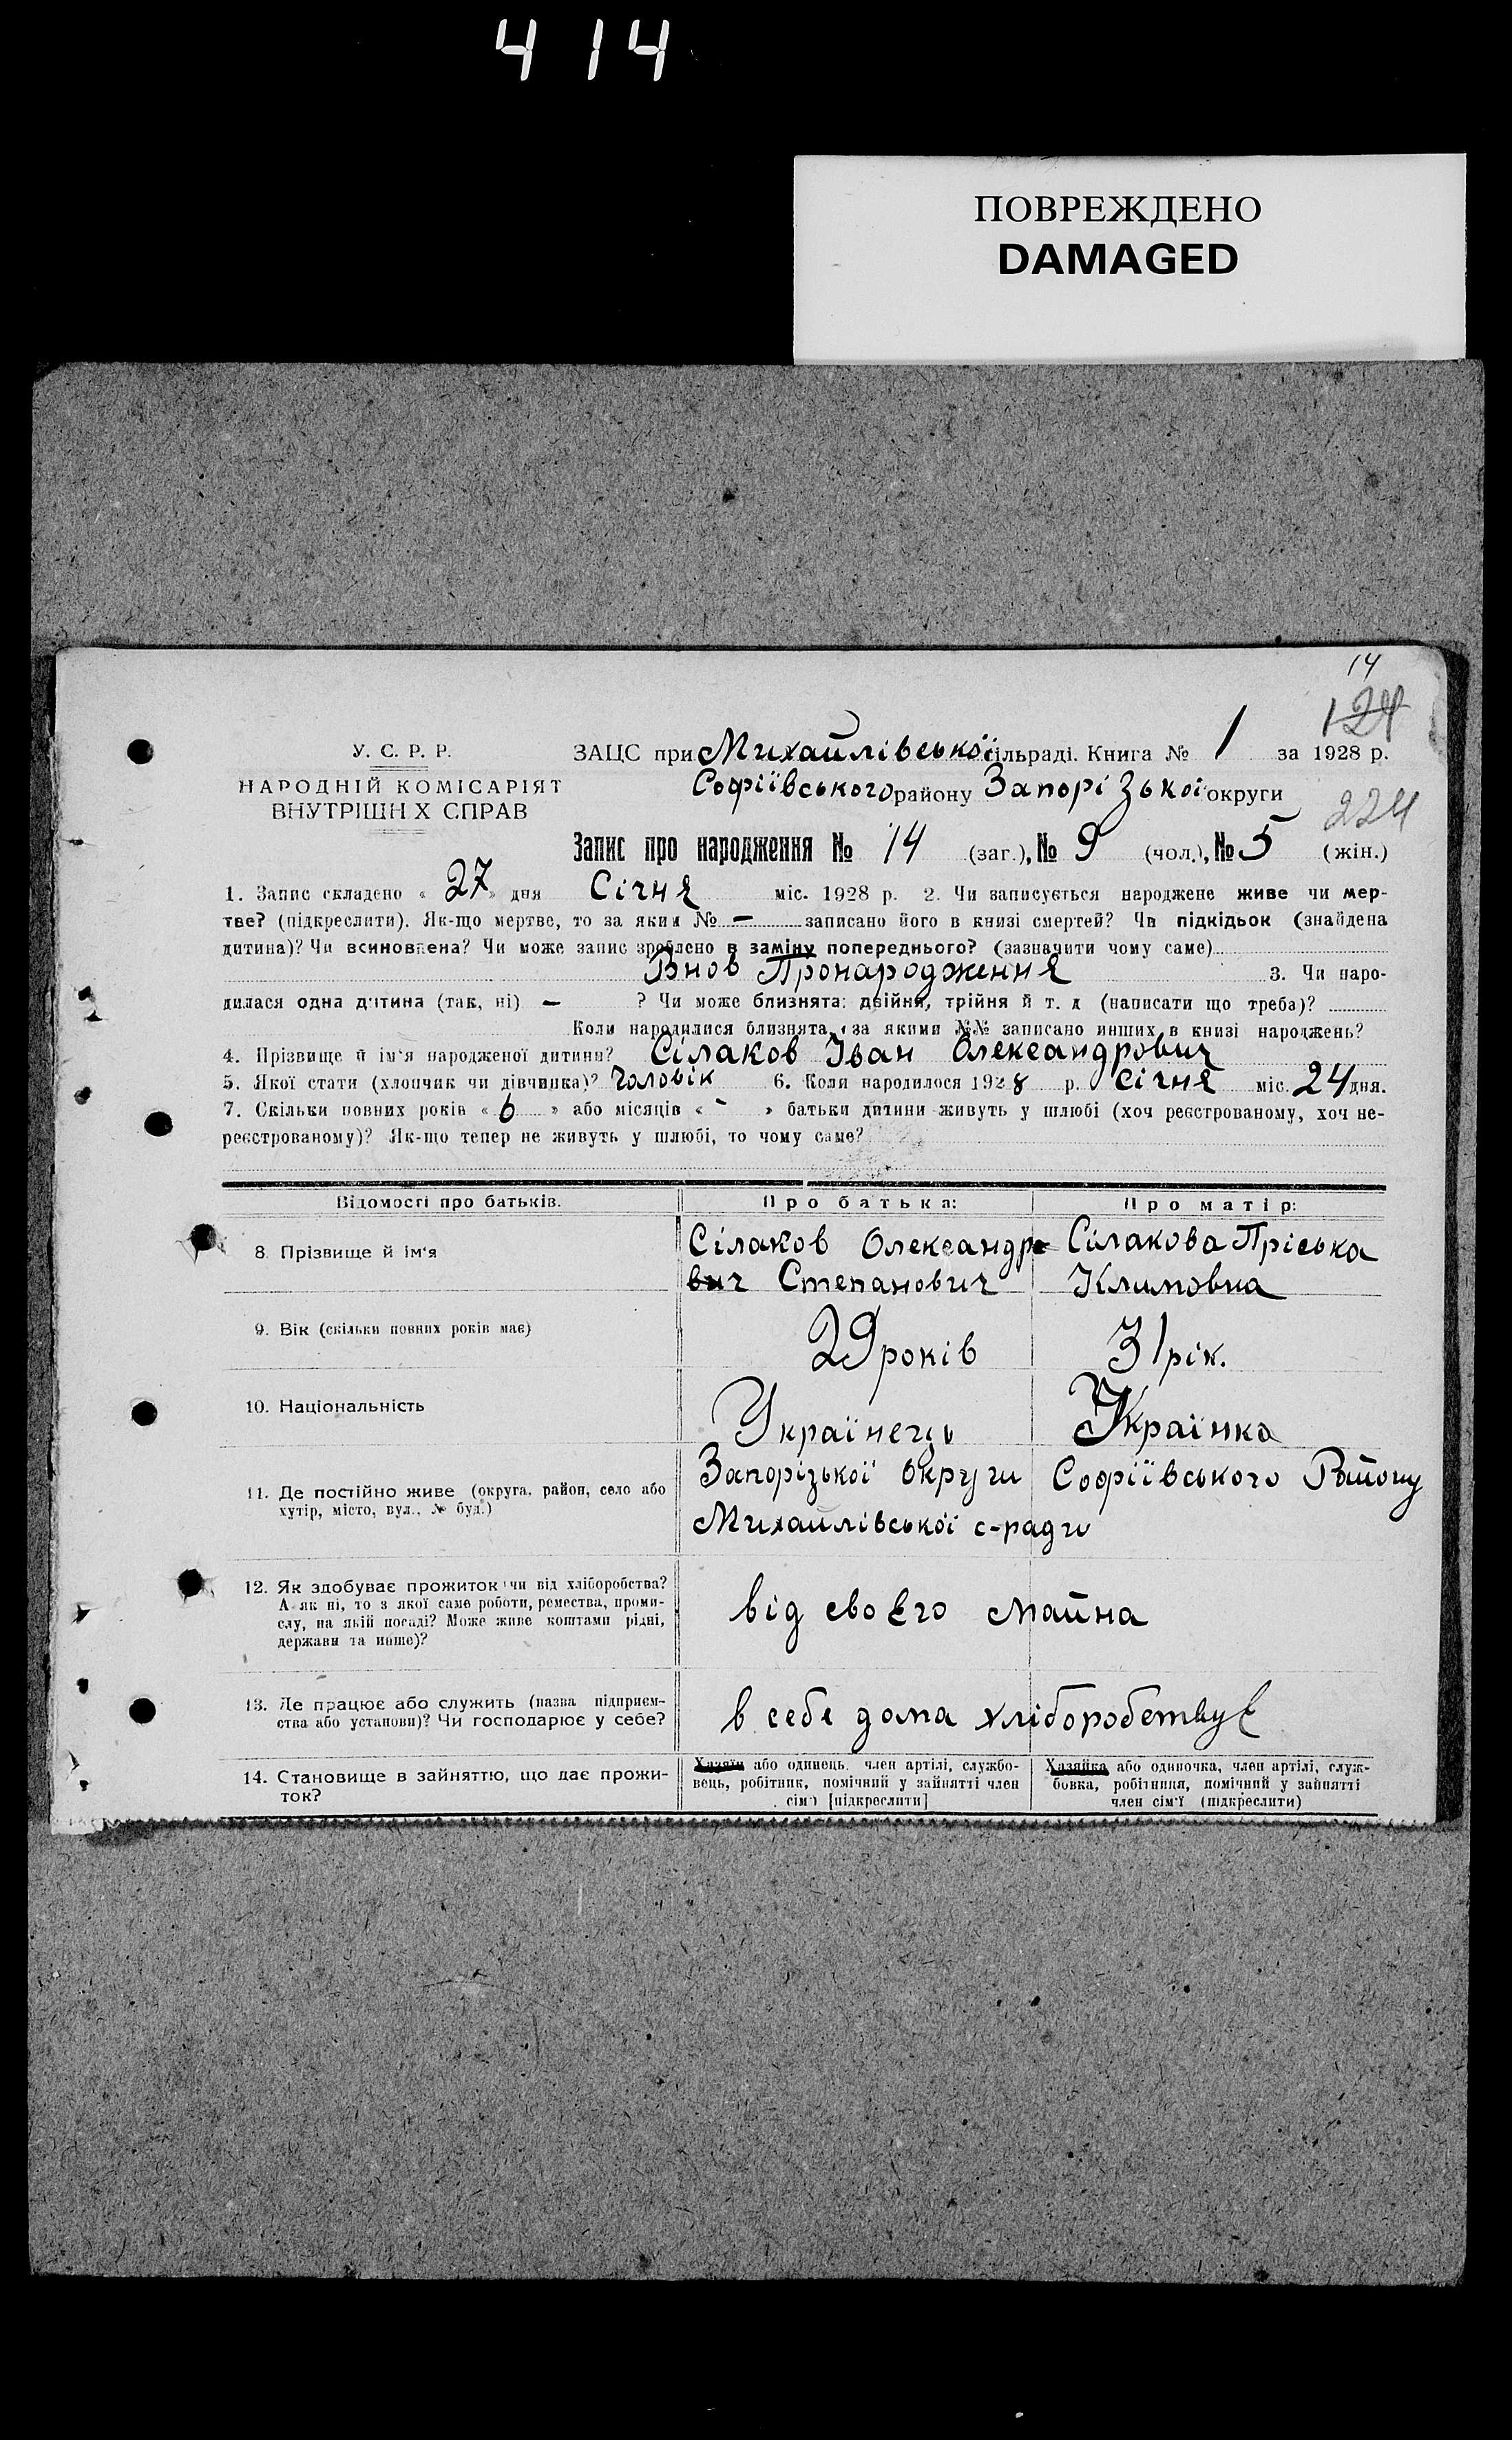 4 14
ПОВРЕЖДЕНО
DAMAGED
14
124
У. С. Р. Р.
НАРОДНІЙ КОМІСАРІЯТ
ВНУТРІШН Х СПРАВ
ЗАЦС при Михайлівської сільраді. Книга № 1 за 1928 р.
Софіївського району Запорізької округи
224
Запис про народження № 14 (заг.), № 9 (чол.), № 5 (жін.)
1. Запис складено « 27 » дня Січня міс. 1928 р. 2. Чи записується народжене живе чи мер-
тве? (підкреслити). Як-що мертве, то за яким № — записано його в книзі смертей? Чи підкідьок (знайдена
дитина)? Чи всиновлена? Чи може запис зроблено в заміну попереднього? (зазначити чому саме)
Внов Пронародження 3. Чи наро-
дилася одна дитина (так, ні) — ? Чи може близнята: двійня, трійня й т. д (написати що треба)?
Коли народилися близнята, за якими №№ записано инших в книзі народжень?
4. Прізвище й ім'я народженої дитини? Сілаков Іван Олександрович
5. Якої стати (хлопчик чи дівчинка)? Чоловік 6. Коли народилося 1928 р. Січня міс. 24 дня.
7. Скільки повних років « 6 » або місяців « - » батьки дитини живуть у шлюбі (хоч реєстрованому, хоч не-
реєстрованому)? Як-що тепер не живуть у шлюбі, то чому саме?
Відомості про батьків. Про батька: Про матір:
8. Прізвище й ім'я
Сілаков Олександр
вич Степанович
Сілакова Пріська
Климовна
9. Вік (скільки повних років має) 29 років 31 рік.
10. Національність Українець Українка
11. Де постійно живе (округа, район, село або
хутір, місто, вул., № буд.)
Запорізької Округи Софіївського Району
Михайлівської с-ради
12. Як здобуває прожиток чи від хліборобства?
А як ні, то з якої саме роботи, ремества, проми-
слу, на якій посаді? Може живе коштами рідні,
держави та инше)?
від своєго майна
13. Де працює або служить (назва підприєм-
ства або установи)? Чи господарює у себе?
в себе дома хліборобствує
14. Становище в зайняттю, що дає прожи-
ток?
Хазяїн або одинець, член артілі, службо-
вець, робітник, помічний у зайнятті член
сім'ї [підкреслити]
Хазяйка або одиночка, член артілі, служ-
бовка, робітниця, помічний у зайнятті
член сім'ї (підкреслити)